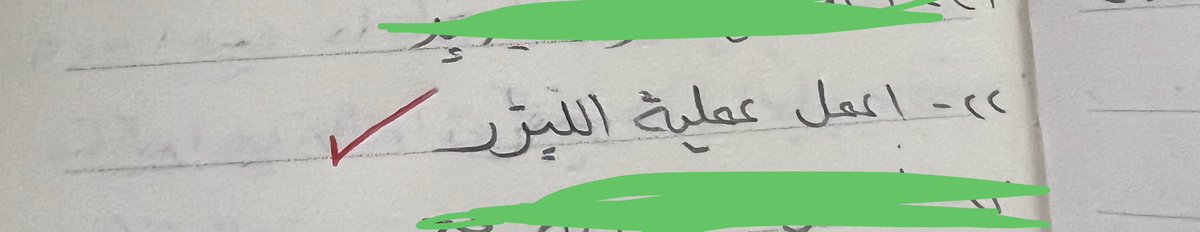 ٢٢- اعمل عملية الليزر